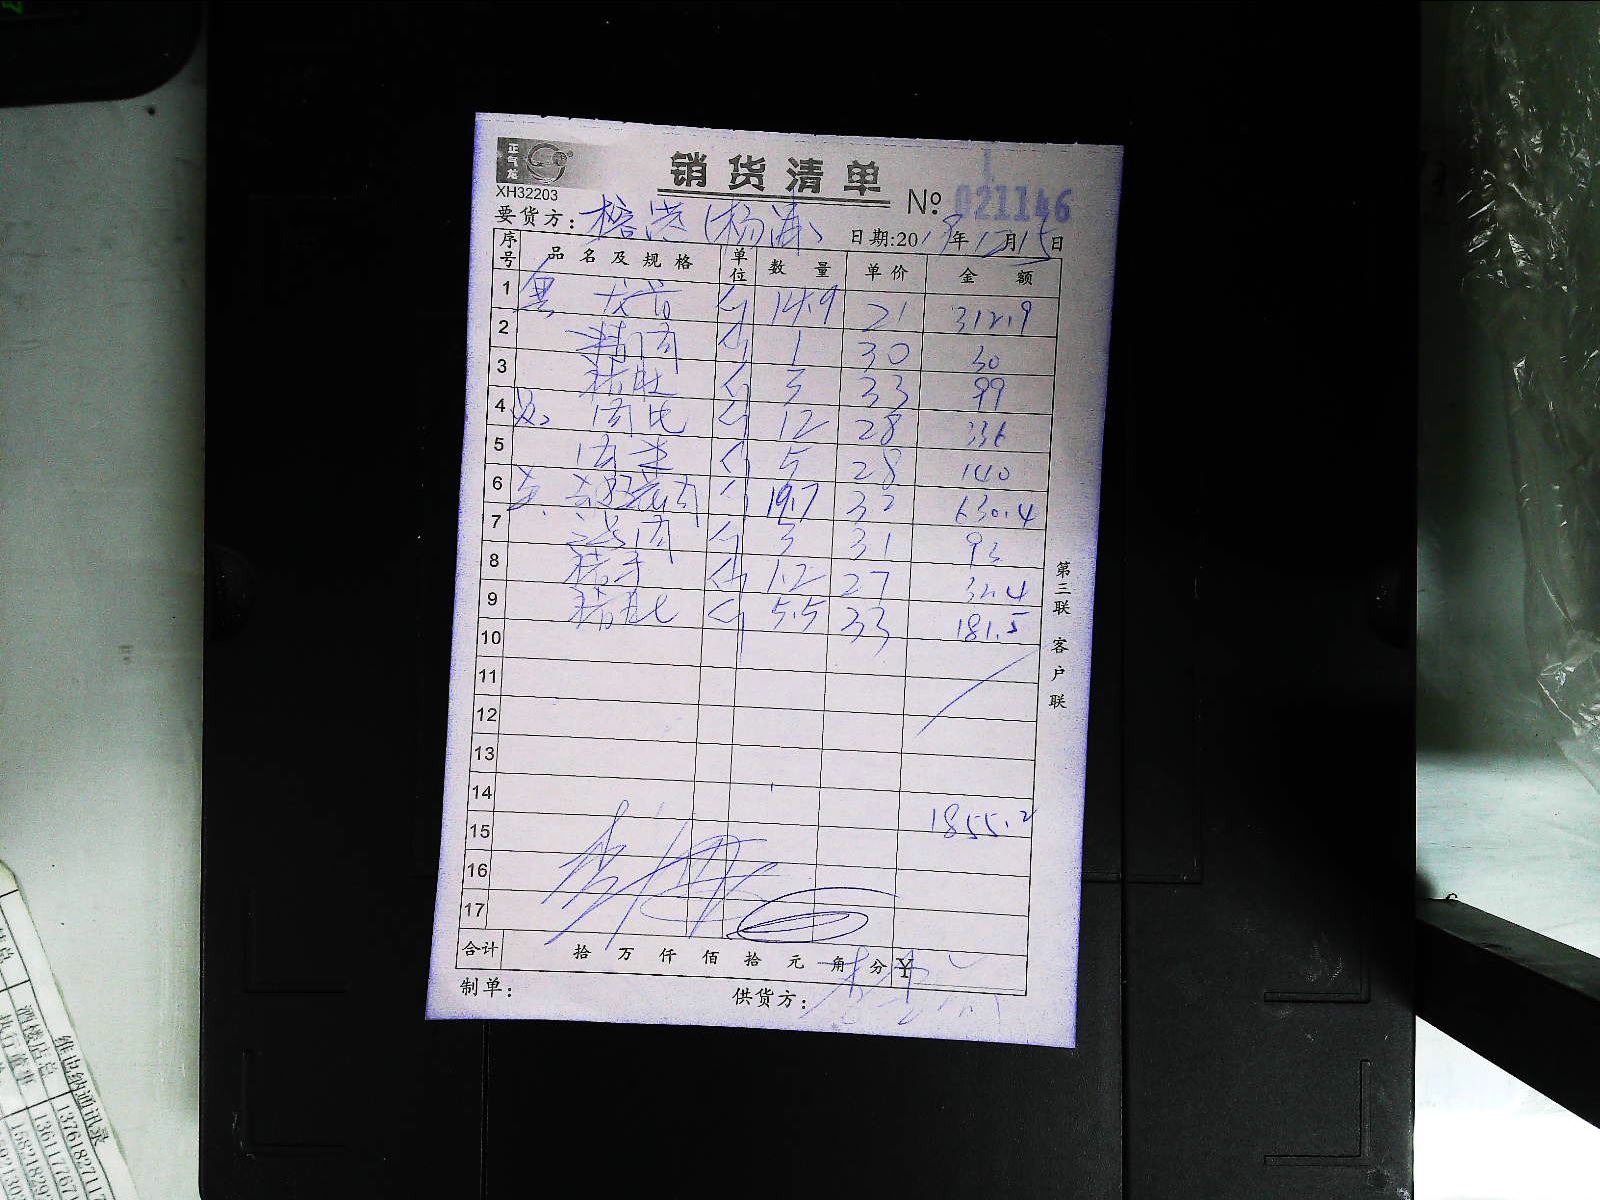 正气龙
XH32203
销货清单
№ 021146
要货方：
日期:2019年12月15日
序号 品名及规格 单位 数量 单价 金额
1 龙骨 斤 14.9 21 312.9
2 精肉 斤 1 30 30
3 猪肚 斤 3 33 99
4 斤 12 28 336
5 斤 5 28 140
6 斤 19.7 32 630.4
7 斤 3 31 93
8 猪手 斤 1.2 27 32.4
9 猪肚 斤 5.5 33 181.5
10
11
12
13
14
1855.2
15
16
17
合计 拾 万 仟 佰 拾 元 角 分 ¥
制单： 供货方：
第三联 客户联
维也纳通讯录
酒楼店总
执行董事